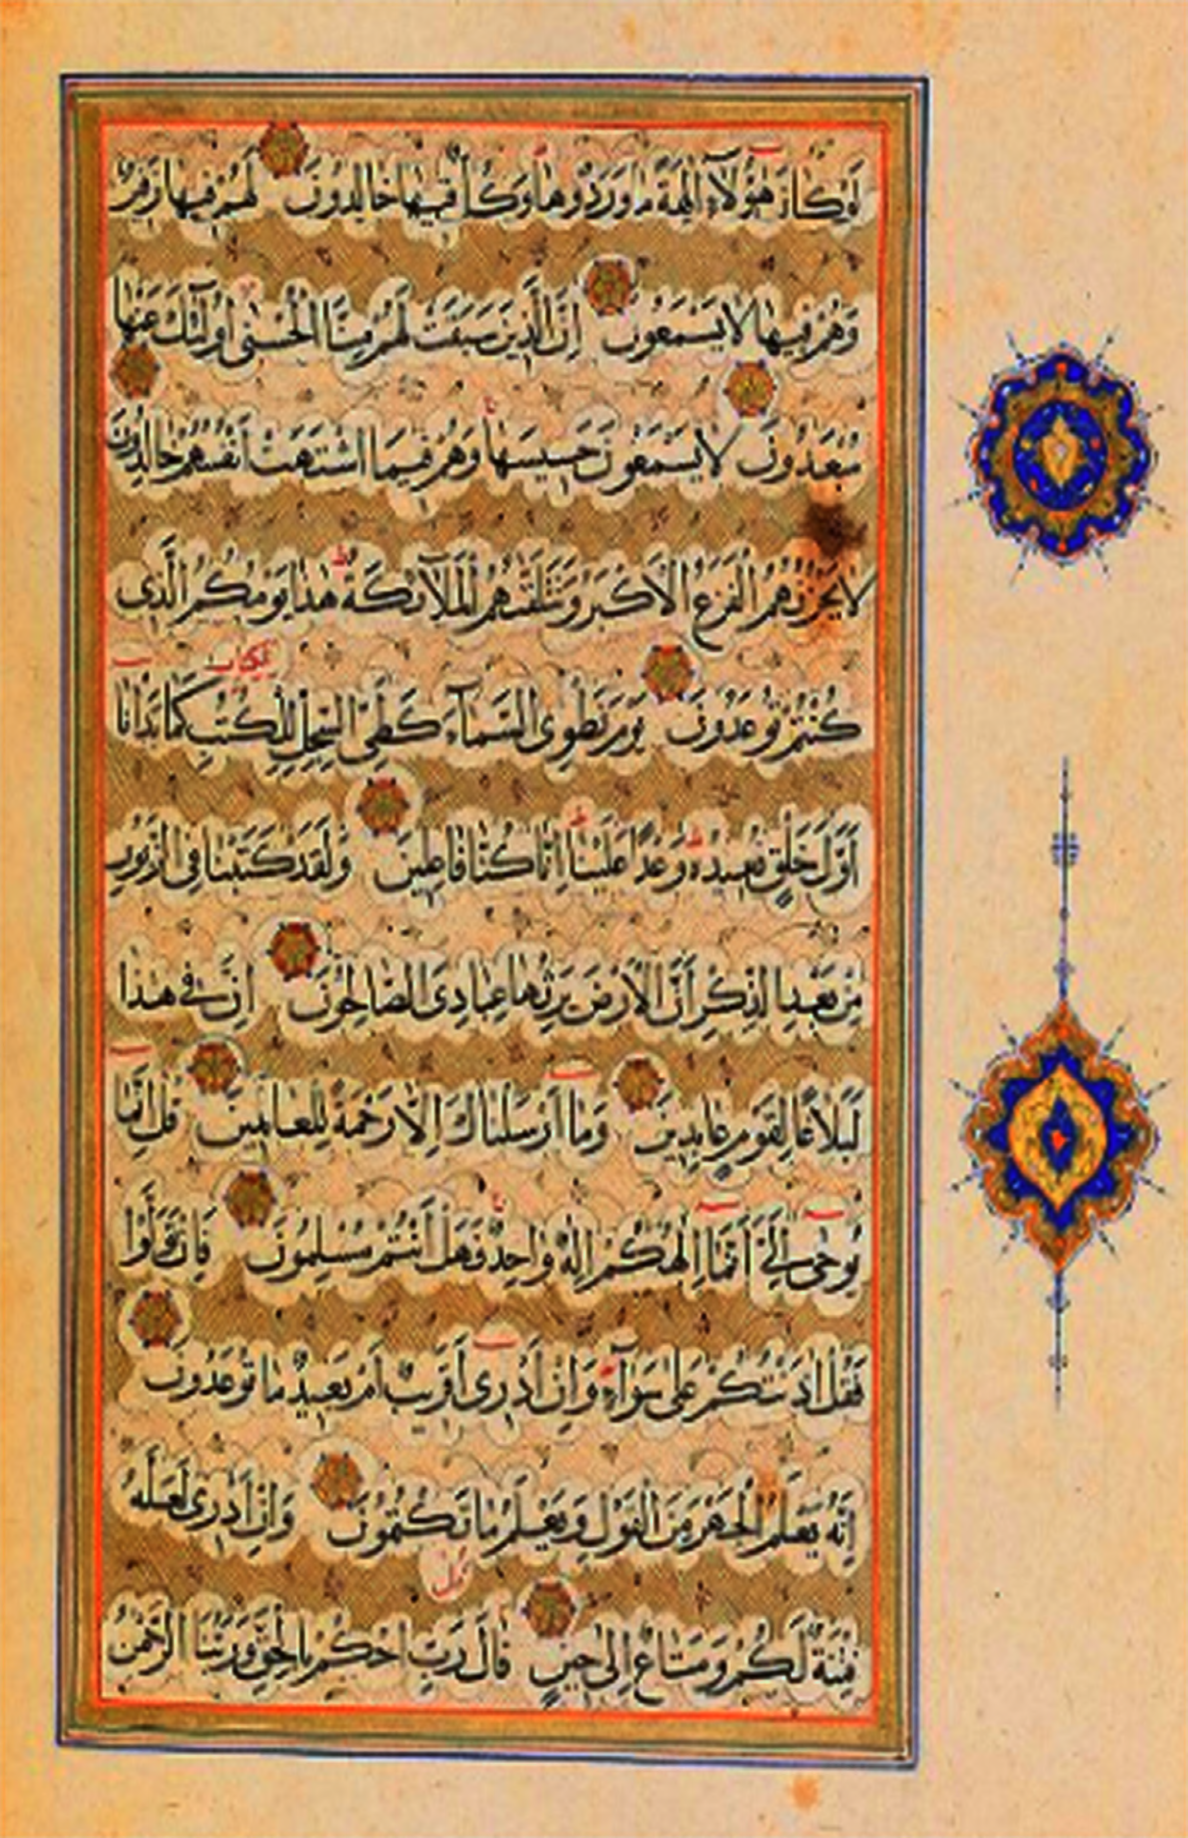 لَوْ كَانَ هٰؤُلَاءِ اٰلِهَةً مَا وَرَدُوهَا وَكُلٌّ فِيهَا خَالِدُونَ لَهُمْ فِيهَا زَفِيرٌ
وَهُمْ فِيهَا لَا يَسْمَعُونَ اِنَّ الَّذِينَ سَبَقَتْ لَهُمْ مِنَّا الْحُسْنٰى اُولٰئِكَ عَنْهَا
مُبْعَدُونَ لَا يَسْمَعُونَ حَسِيسَهَا وَهُمْ فِيمَا اشْتَهَتْ اَنْفُسُهُمْ خَالِدُونَ
لَا يَحْزُنُهُمُ الْفَزَعُ الْاَكْبَرُ وَتَتَلَقّٰىهُمُ الْمَلٰٓائِكَةُ هٰذَا يَوْمُكُمُ الَّذِى
كُنْتُمْ تُوعَدُونَ يَوْمَ نَطْوِى السَّمَآءَ كَطَىِّ السِّجِلِّ لِلْكُتُبِ كَمَا بَدَاْنَا
للكتاب
اَوَّلَ خَلْقٍ نُعِيدُهُ وَعْدًا عَلَيْنَا اِنَّا كُنَّا فَاعِلِينَ وَلَقَدْ كَتَبْنَا فِى الزَّبُورِ
مِنْ بَعْدِ الذِّكْرِ اَنَّ الْاَرْضَ يَرِثُهَا عِبَادِىَ الصَّالِحُونَ اِنَّ فِى هٰذَا
لَبَلَاغًا لِقَوْمٍ عَابِدِينَ وَمَا اَرْسَلْنَاكَ اِلَّا رَحْمَةً لِلْعَالَمِينَ قُلْ اِنَّمَا
يُوحٰى اِلَىَّ اَنَّمَا اِلٰهُكُمْ اِلٰهٌ وَاحِدٌ فَهَلْ اَنْتُمْ مُسْلِمُونَ فَاِنْ تَوَلَّوْا
فَقُلْ اٰذَنْتُكُمْ عَلٰى سَوَآءٍ وَاِنْ اَدْرِى اَقَرِيبٌ اَمْ بَعِيدٌ مَا تُوعَدُونَ
اِنَّهُ يَعْلَمُ الْجَهْرَ مِنَ الْقَوْلِ وَيَعْلَمُ مَا تَكْتُمُونَ وَاِنْ اَدْرِى لَعَلَّهُ
فِتْنَةٌ لَكُمْ وَمَتَاعٌ اِلٰى حِينٍ قَالَ رَبِّ احْكُمْ بِالْحَقِّ وَرَبُّنَا الرَّحْمٰنُ